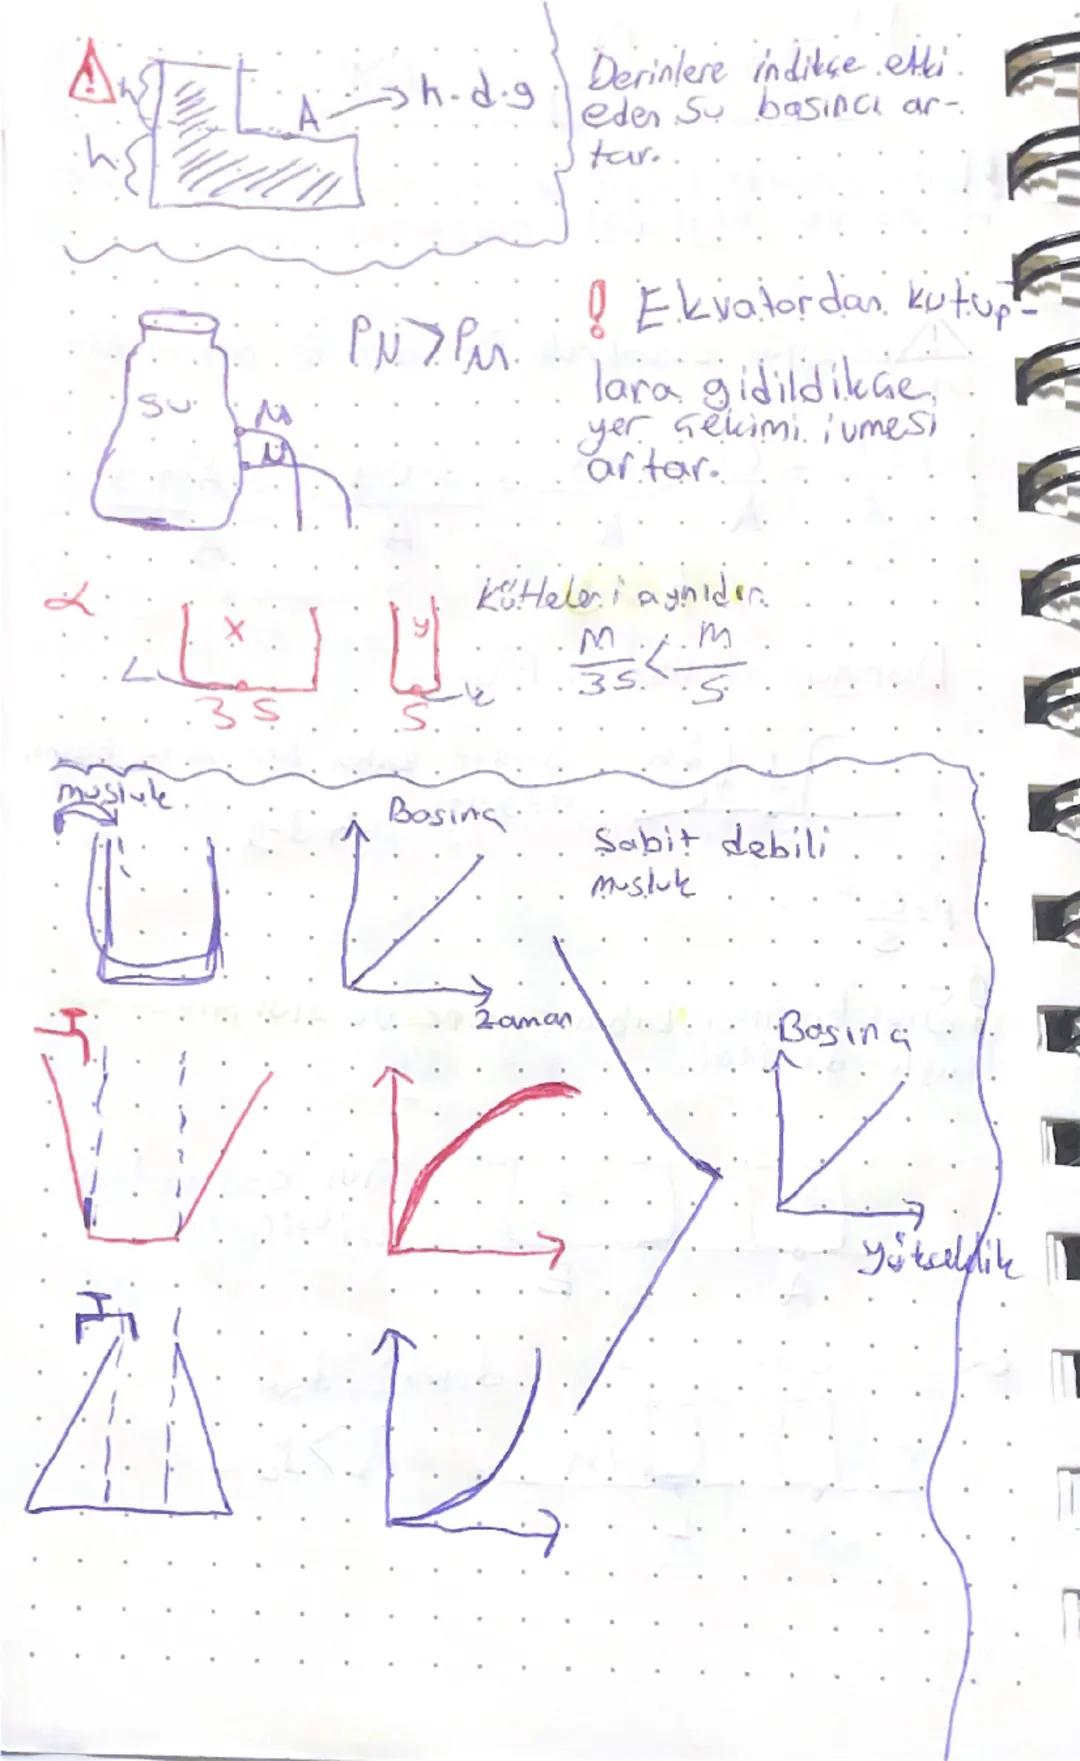 h
A → h.d.g
h
Derinlere indikçe etki
eden su basıncı ar-
tar.
su
M
N
PN > PM
! Ekvatordan kutup-
lara gidildikçe
yer çekimi ivmesi
artar.
x
y
L
3S
S
k
Kütleleri aynıdır.
m/3S < m/S
musluk
Basınç
Zaman
Sabit debili
musluk
Basınç
Yükseklik